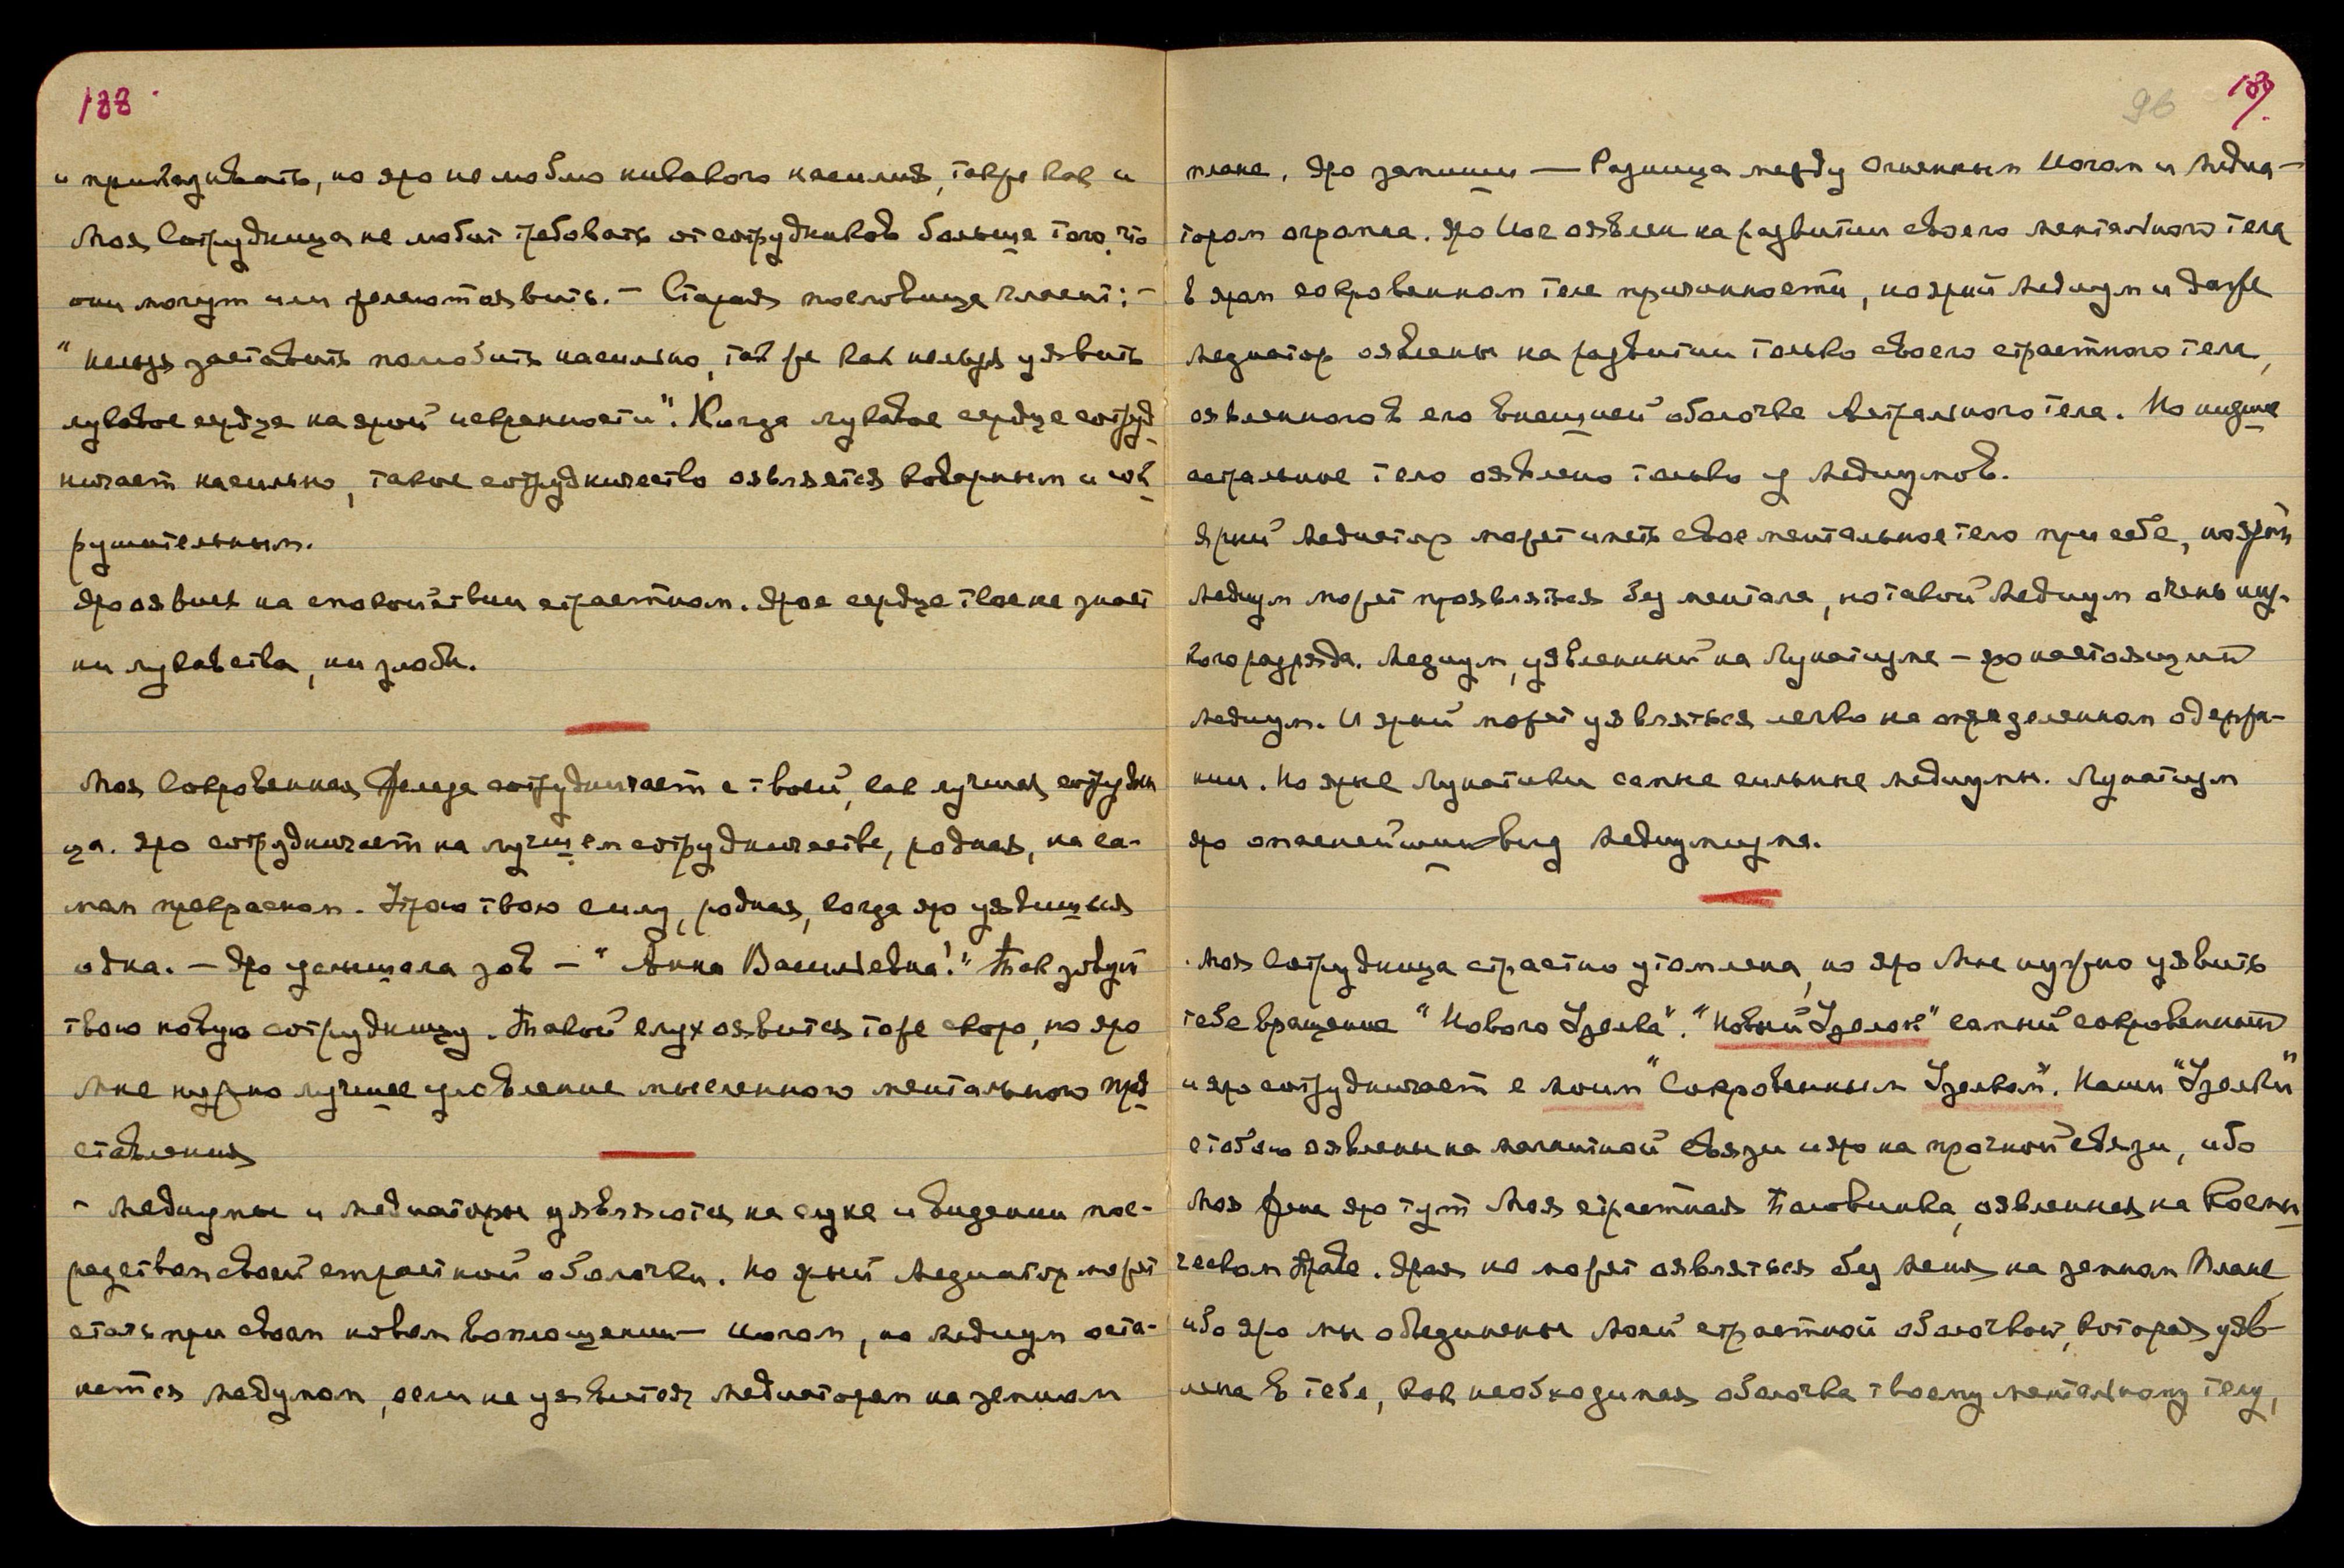 188.
и приказывать, но яро не люблю никакого насилия, также как и
Моя Сотрудница не любит требовать от сотрудников больше того, что
они могут или желают явить. – Старая пословица гласит: –
"нельзя заставить полюбить насильно, так же как нельзя уявить
лукавое сердце на ярой искренности". Когда лукавое сердце сотруд-
ничает насильно, такое сотрудничество оявляется коварным и сок
рушительным.
Яро оявись на спокойствии страстном. Ярое сердце твое не знает
ни лукавства, ни злобы.
Моя Сокровенная Железа сотрудничает с твоей, как лучшая сотрудни
ца. Яро сотрудничает на лучшем сотрудничестве, родная, на са-
мом прекрасном. Утрою твою силу, родная, когда яро уявишься
одна. – Яро услышала зов – "Анна Васильевна!" Так зовут
твою новую сотрудницу. Такой слух оявится тоже скоро, но яро
Мне нужно лучшее уловление мысленного ментального пред
ставления
– Медиумы и медиаторы уявляются на слухе и видении пос-
редством своей страстной оболочки. Но ярый Медиатор может
стать при своем новом воплощении – йогом, но Медиум оста-
нется Медумом, если не уявится Медиатором на земном
96
189.
плане. Яро запиши — Разница между Огненным Йогом и Медиа-
тором огромна. Яро Йог оявлен на развитии своего ментального тела
в яром сокровенном теле причинности, но ярый Медиум и даже
медиатор оявлены на развитии только своего страстного тела,
оявленного в его внешней оболочке Астрального тела. Но низшее
астральное тело оявлено только у Медиумов.
Ярый Медиатор может иметь свое ментальное тело при себе, но ярый
Медиум может проявляться без ментала, но такой Медиум очень низ-
кого разряда. Медиум, уявленный на Лунатизме – яро настоящий
Медиум. И ярый может уявляться легко на определенном одержа-
нии. Но ярые Лунатики самые сильные медиумы. Лунатизм
яро опаснейший вид Медиумизма.
Моя Сотрудница страстно утомлена, но яро Мне нужно уявить
тебе вращение "Нового Узелка". "Новый Узелок" самый сокровенный
и яро сотрудничает с моим "Сокровенным Узелком". Наши "Узелки"
с тобою оявлены на магнитной связи и яро на прочной связи, ибо
Моя Жена яро тут Моя страстная Половинка, оявленная на Косми
ческом Праве. Ярая не может оявляться без Меня на земном Плане
ибо яро мы объединены Моей страстной оболочкой, которая уяв-
лена в тебе, как необходимая оболочка твоему ментальному телу,